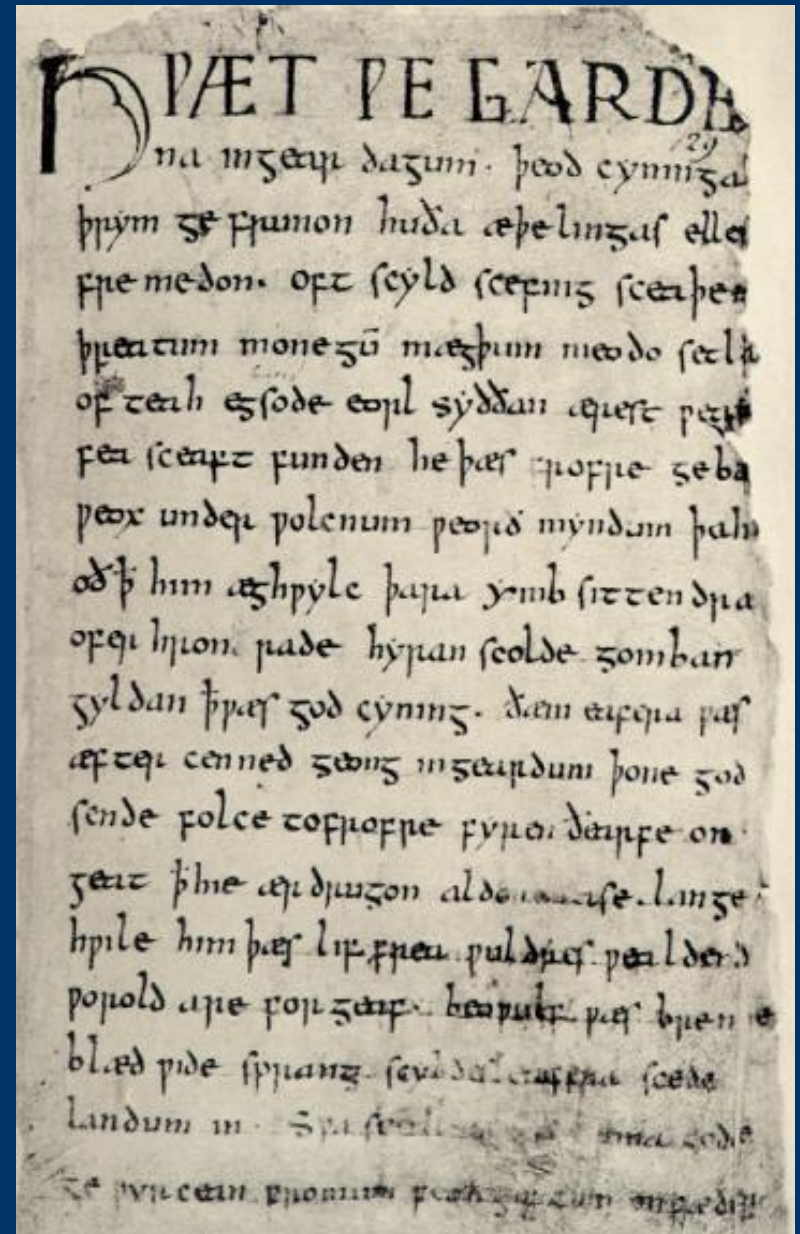 HǷÆT ǷE GARDE
129
na in geardagum. þeod cyninga
þrym ge frunon huða æþelingas ellen
fremedon. oft scyld scefing sceaþen
þreatum monegū mægþum meodo setla
of teah egsode eorl syððan ærest ƿear
fea sceaft funden he þæs frofre geba
ƿeox under ƿolcnum ƿeorð myndum þah
oð ꝥ him æghƿylc þara ymb sittendra
ofer hron rade hyran scolde gomban
gyldan ꝥ ƿæs god cyning. ðæm eafera ƿæs
æfter cenned geong in geardum þone god
sende folce tofrofre fyren ðearfe on
geat ꝥ hie ær drugon aldor ase. lange
hƿile him þæs liffrea ƿuldres ƿealdend
ƿorold are for geaf. beoƿulf ƿæs breme
blæd ƿide sprang scyldes eafera scede
landum in. Sƿa sceal ma gode
ge ƿyrcean fromum feoh giftum on fæder